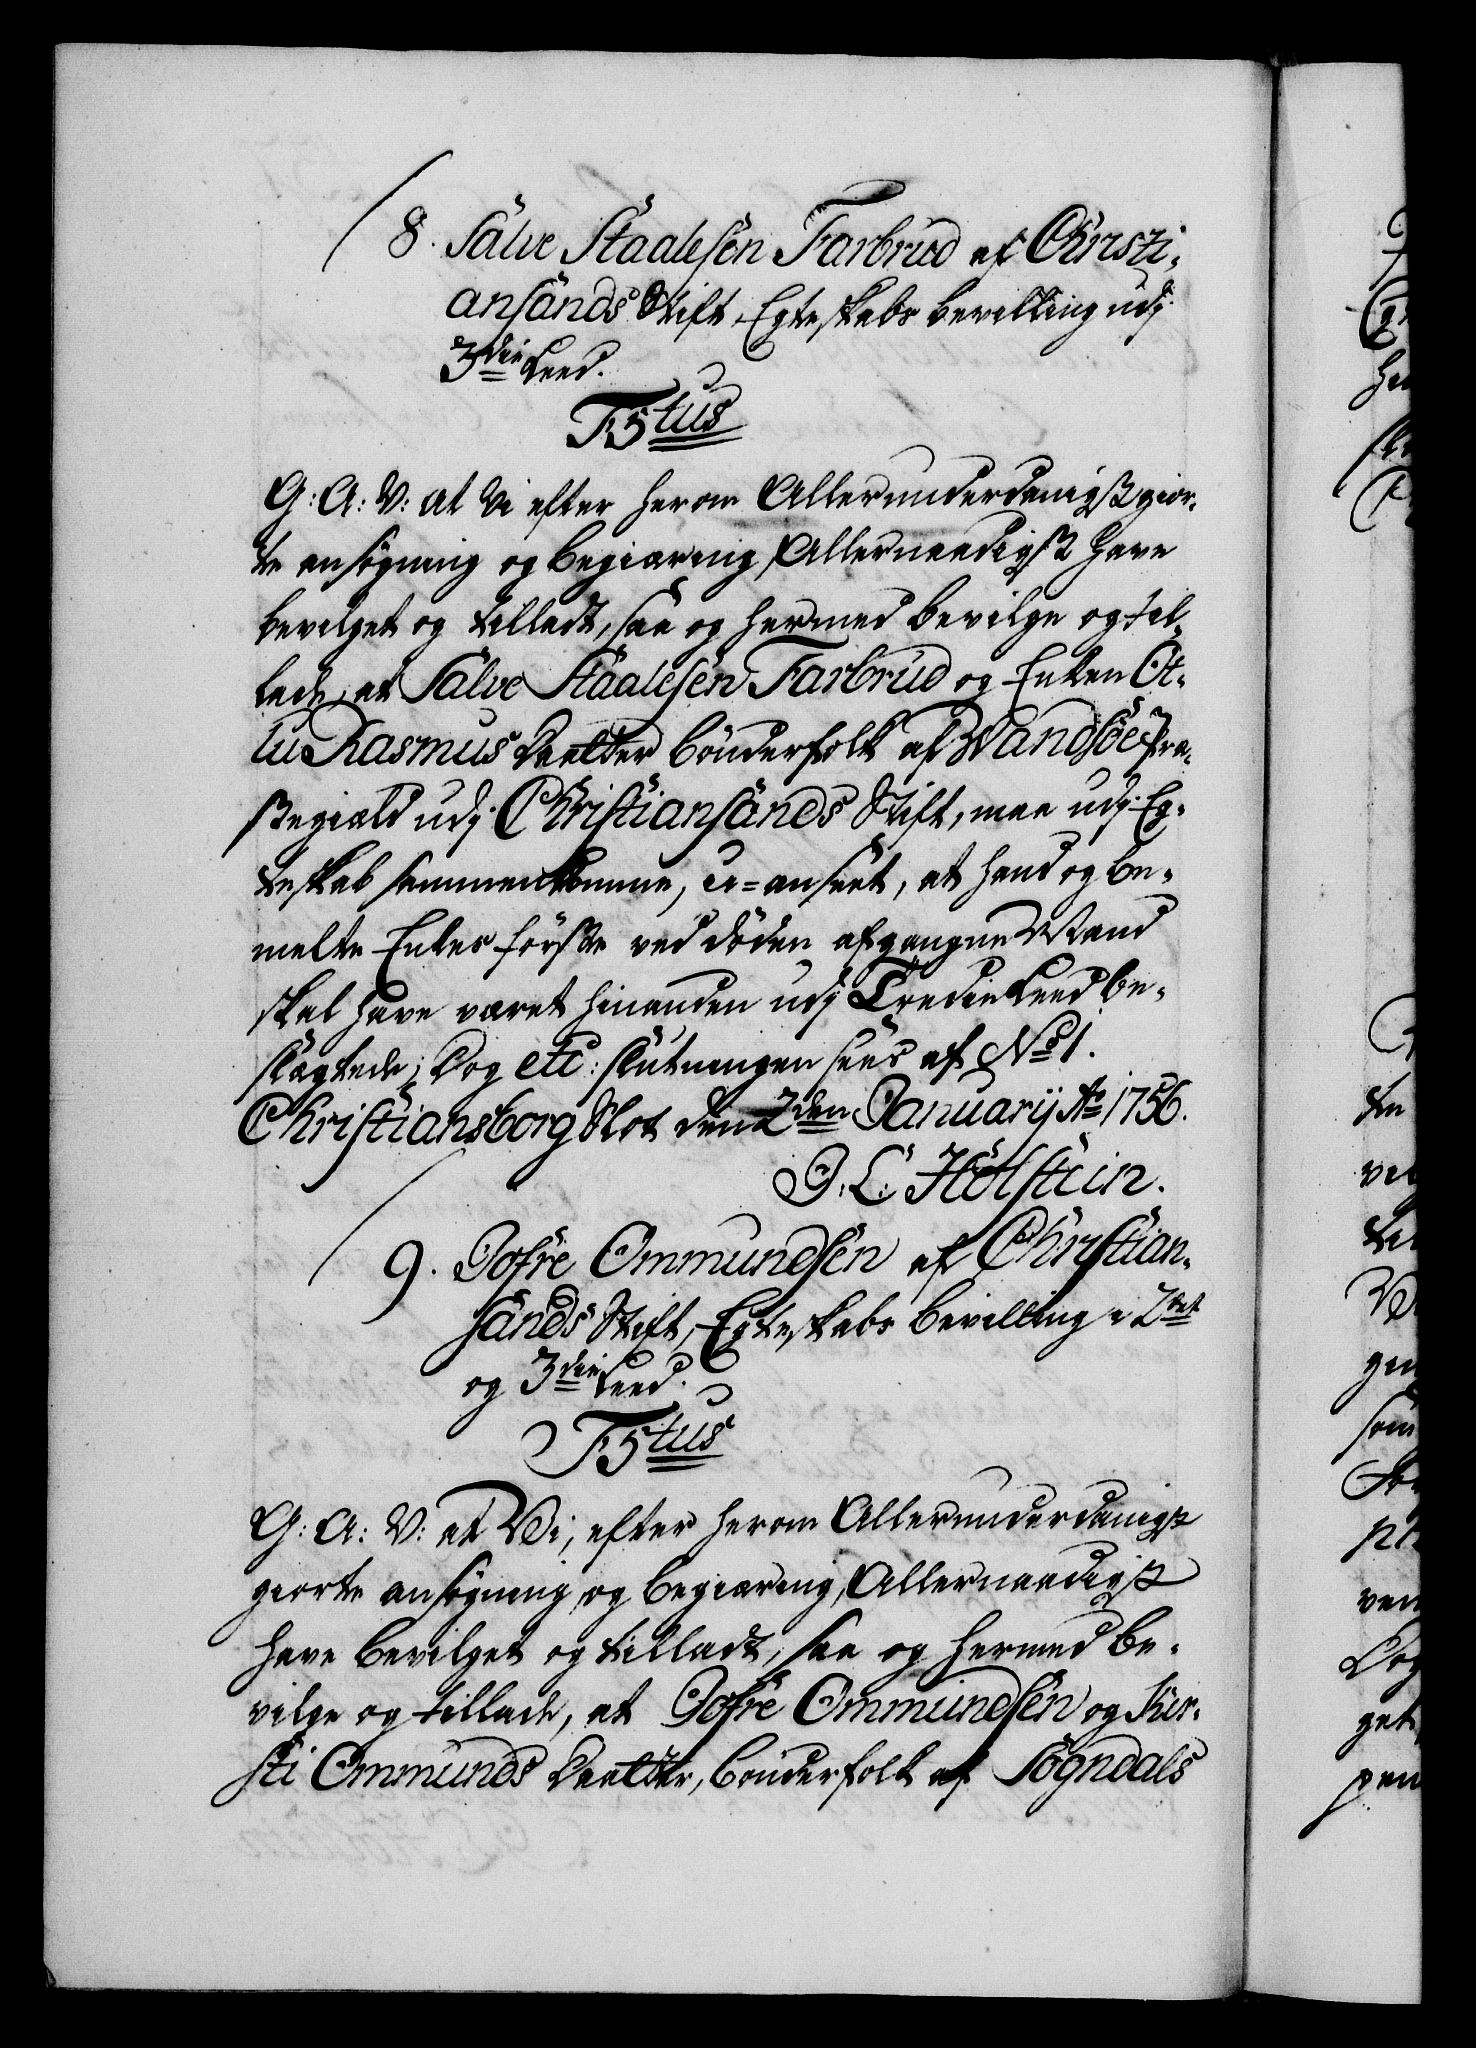 8. Salve Staalesen Farbrud af Christi-
ansands Stift, Egteskabs bevilling udj
3die Leed.
F5tus
G: A: V: at Vi efter herom Allerunderdanigst gior-
te ansøgning og begiæring, Allernaadigst have
bevilget og tilladt, saa og hermed bevilge og til-
lade, at Salve Staalesen Farbrud og Enken Ot-
lu Rasmus Daatter bönderfolk af Wandsöe Præ-
stegield udj Christiansands Stift, maa udj Eg-
teskab sammenkomme, u-anseet, at hand og be-
melte Enkes förste ved döden afgangne Mand
skal have været hinanden udj Tredie Leed be-
slægtede; Dog etc: slutningen sees af No 1.
Christiansborg Slot den 2den Januarij Ao 1756.
J. L. Holstein.
9. Jofre Ommundsen af Christian-
sands Stift, Egteskabs bevilling i 2det
og 3die Leed.
F5tus
G: A: V: at Vi, efter herom Allerunderdanigst
giorte ansøgning og begiæring, Allernaadigst
have bevilget og tilladt, saa og hermed be-
vilge og tillade, at Jofre Ommundsen og Kier-
sti Ommunds Daatter, bönderfolk af Sogndals